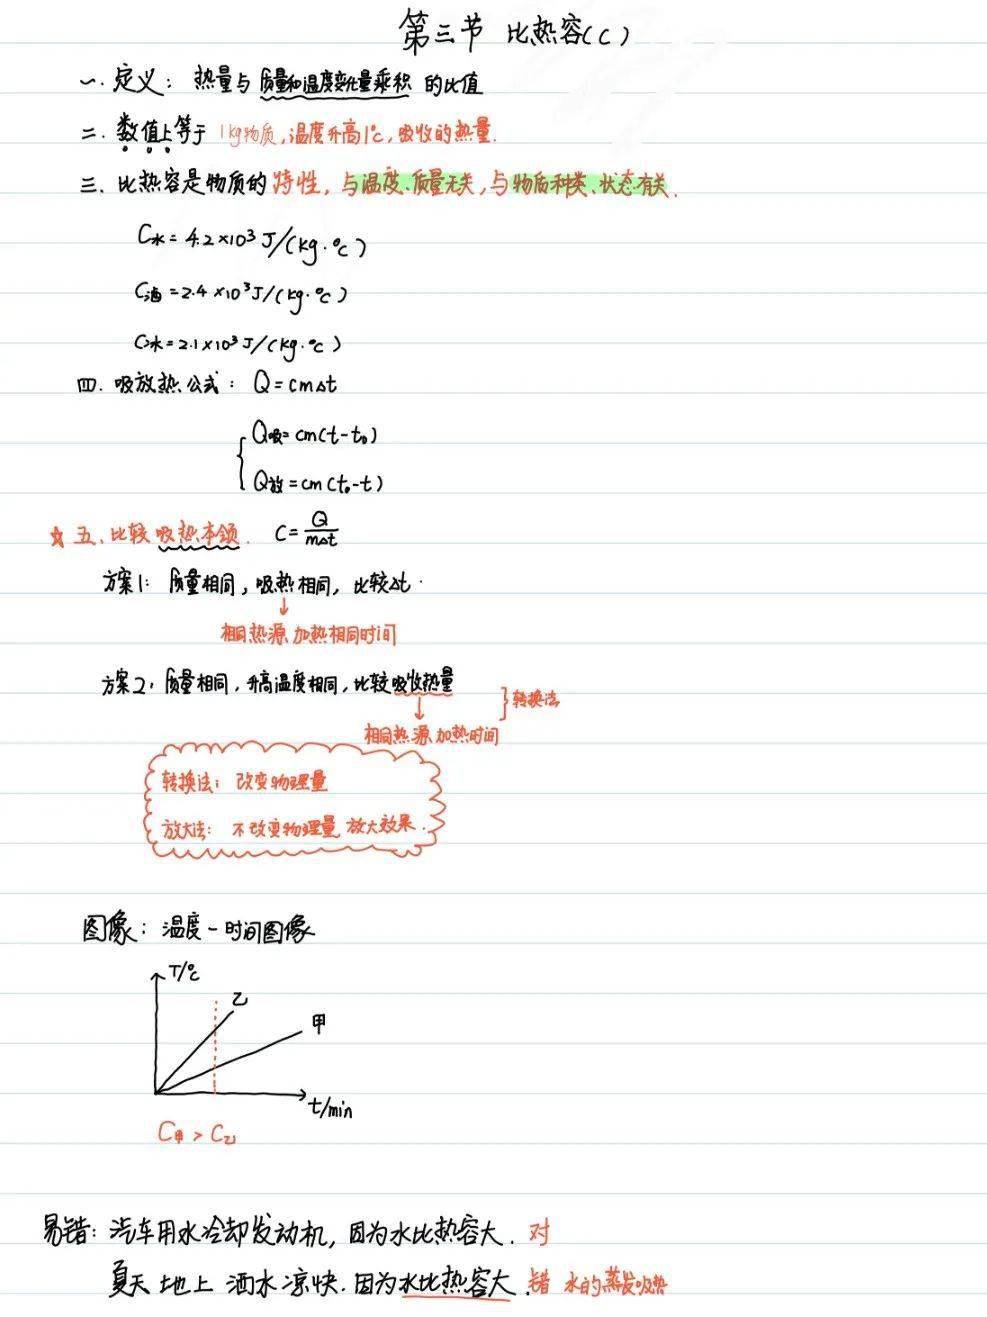 第三节 比热容(C)
一. 定义: 热量与 质量和温度变化量乘积 的比值
二. 数值上等于 1kg物质,温度升高1℃,吸收的热量.
三. 比热容是物质的特性,与温度、质量无关,与物质种类、状态有关.
C水=4.2×10³J/(kg·℃)
C酒=2.4×10³J/(kg·℃)
C冰=2.1×10³J/(kg·℃)
四. 吸放热公式: Q=cm△t
Q吸=cm(t-t₀)
Q放=cm(t₀-t)
☆五、比较吸热本领. C=Q/m△t
方案1: 质量相同,吸热相同,比较△t.
↓
相同热源 加热相同时间
方案2: 质量相同,升高温度相同,比较吸收热量
↓ }转换法
相同热源 加热时间
转换法: 改变物理量
放大法: 不改变物理量 放大效果.
图像: 温度-时间图像
T/℃
乙
甲
t/min
C甲>C乙
易错: 汽车用水冷却发动机,因为水比热容大. 对
夏天 地上 洒水凉快.因为水比热容大. 错 水的蒸发吸热